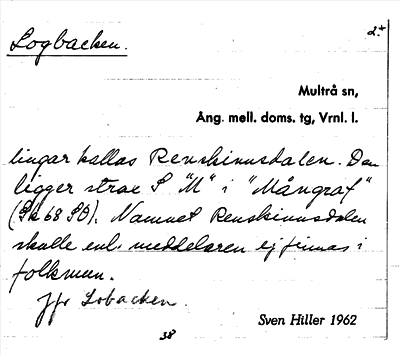 Logbacken.
2.
Multrå sn,
Ang. mell. doms. tg, Vrnl. l.
lingar kallas Renskinnsdalen. Den
ligger strax S "M" i "Mångraf"
(Sk 68 SO). Namnet Renskinnsdalen
skulle enl. meddelaren ej finnas i
folkmun.
Jfr Lobacken.
Sven Hiller 1962
38